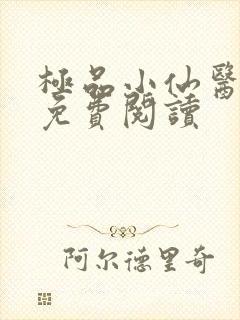 極品小仙醫
免費閱讀
阿尔德里奇